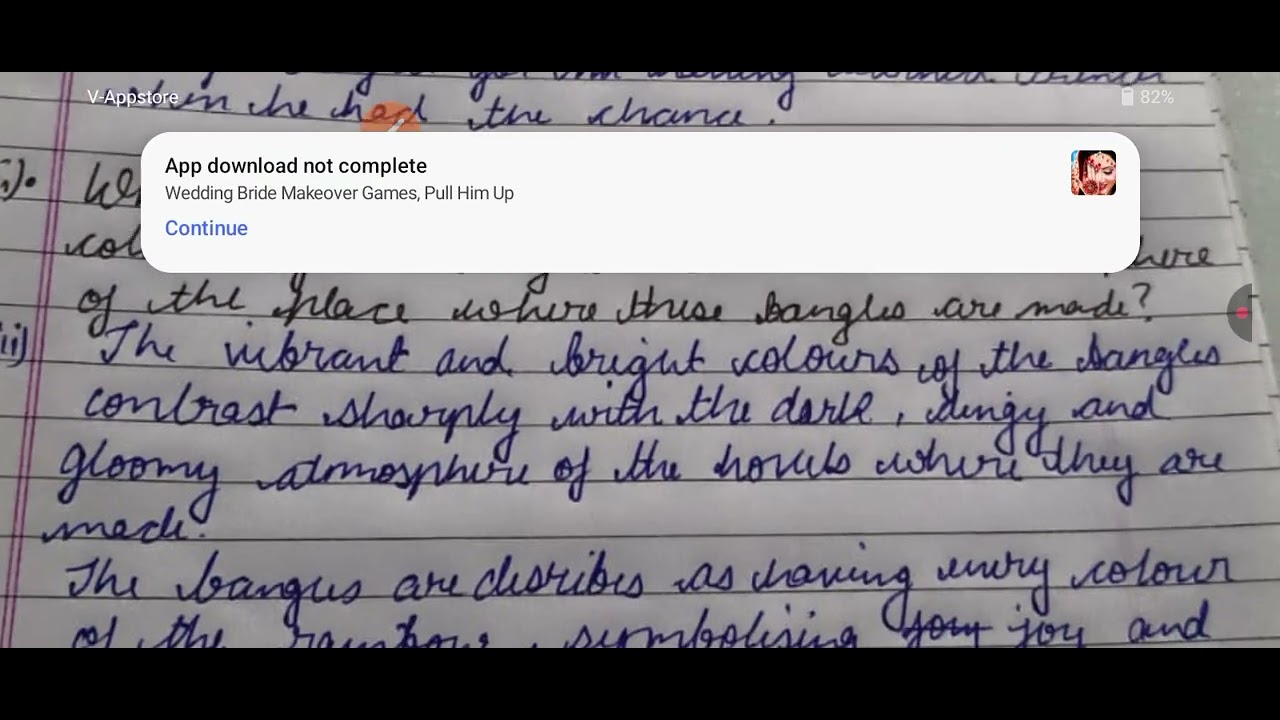 V-Appstore
82%
when he had the chance.
App download not complete
Wedding Bride Makeover Games, Pull Him Up
Continue
of the place where these bangles are made?
ii) The vibrant and bright colours of the bangles
contrast sharply with the dark, dingy and
gloomy atmosphere of the hovels where they are
made.
The bangles are describes as having every colour
of the rainbow, symbolising joy and